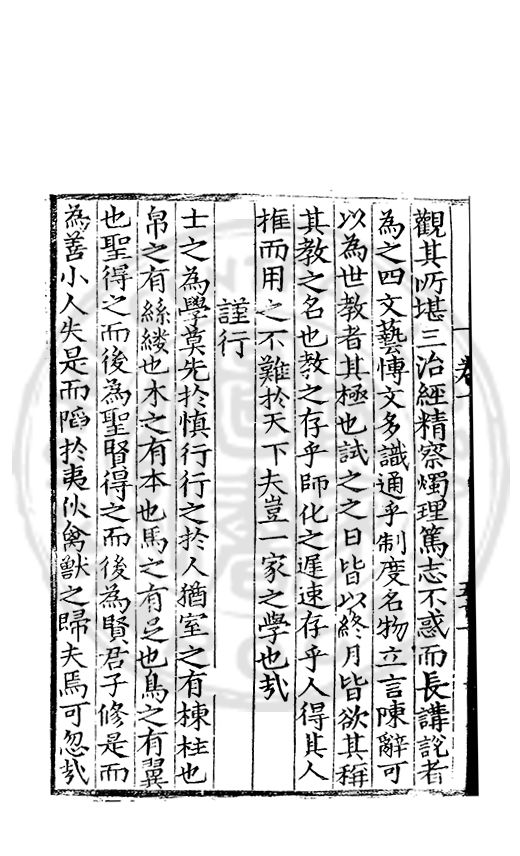 觀其所堪三治經精察燭理篤志不惑而長講説者
為之四文藝愽文多識通乎制度名物立言陳辭可
以為世教者其極也試之之日皆以終月皆欲其稱
其教之名也教之存乎師化之遲速存乎人得其人
推而用之不難於天下夫豈一家之學也㢤
謹行
士之為學莫先於慎行行之於人猶室之有棟柱也
帛之有絲縷也木之有本也馬之有足也鳥之有翼
也聖得之而後為聖賢得之而後為賢君子修是而
為善小人失是而䧟於夷狄禽獸之歸夫焉可忽㢤